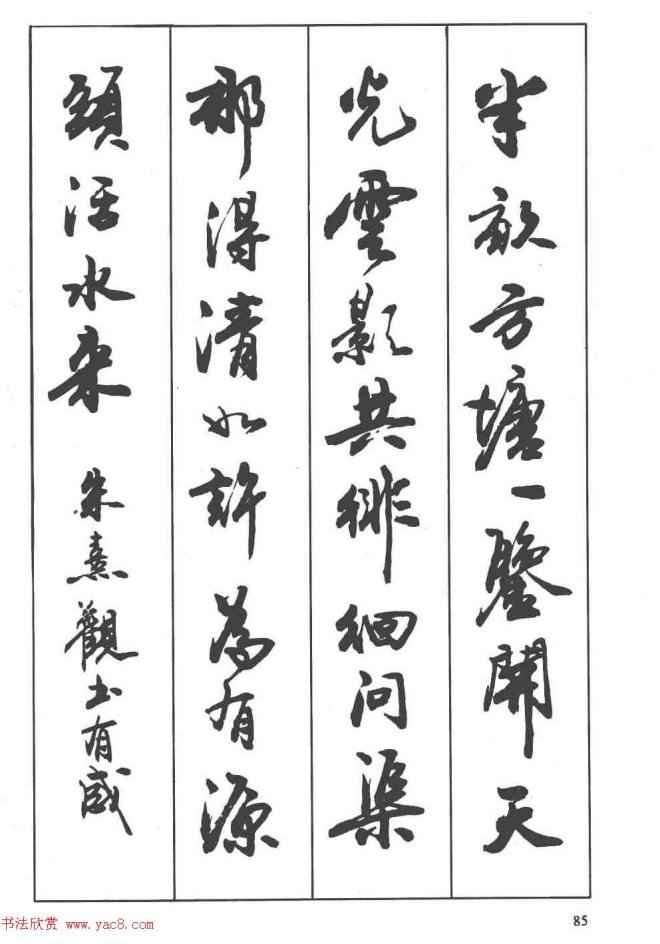 半畝方塘一鑒開天
光雲影共徘徊問渠
那得清如許為有源
頭活水來 朱熹觀书有感
书法欣赏 www.yac8.com
85